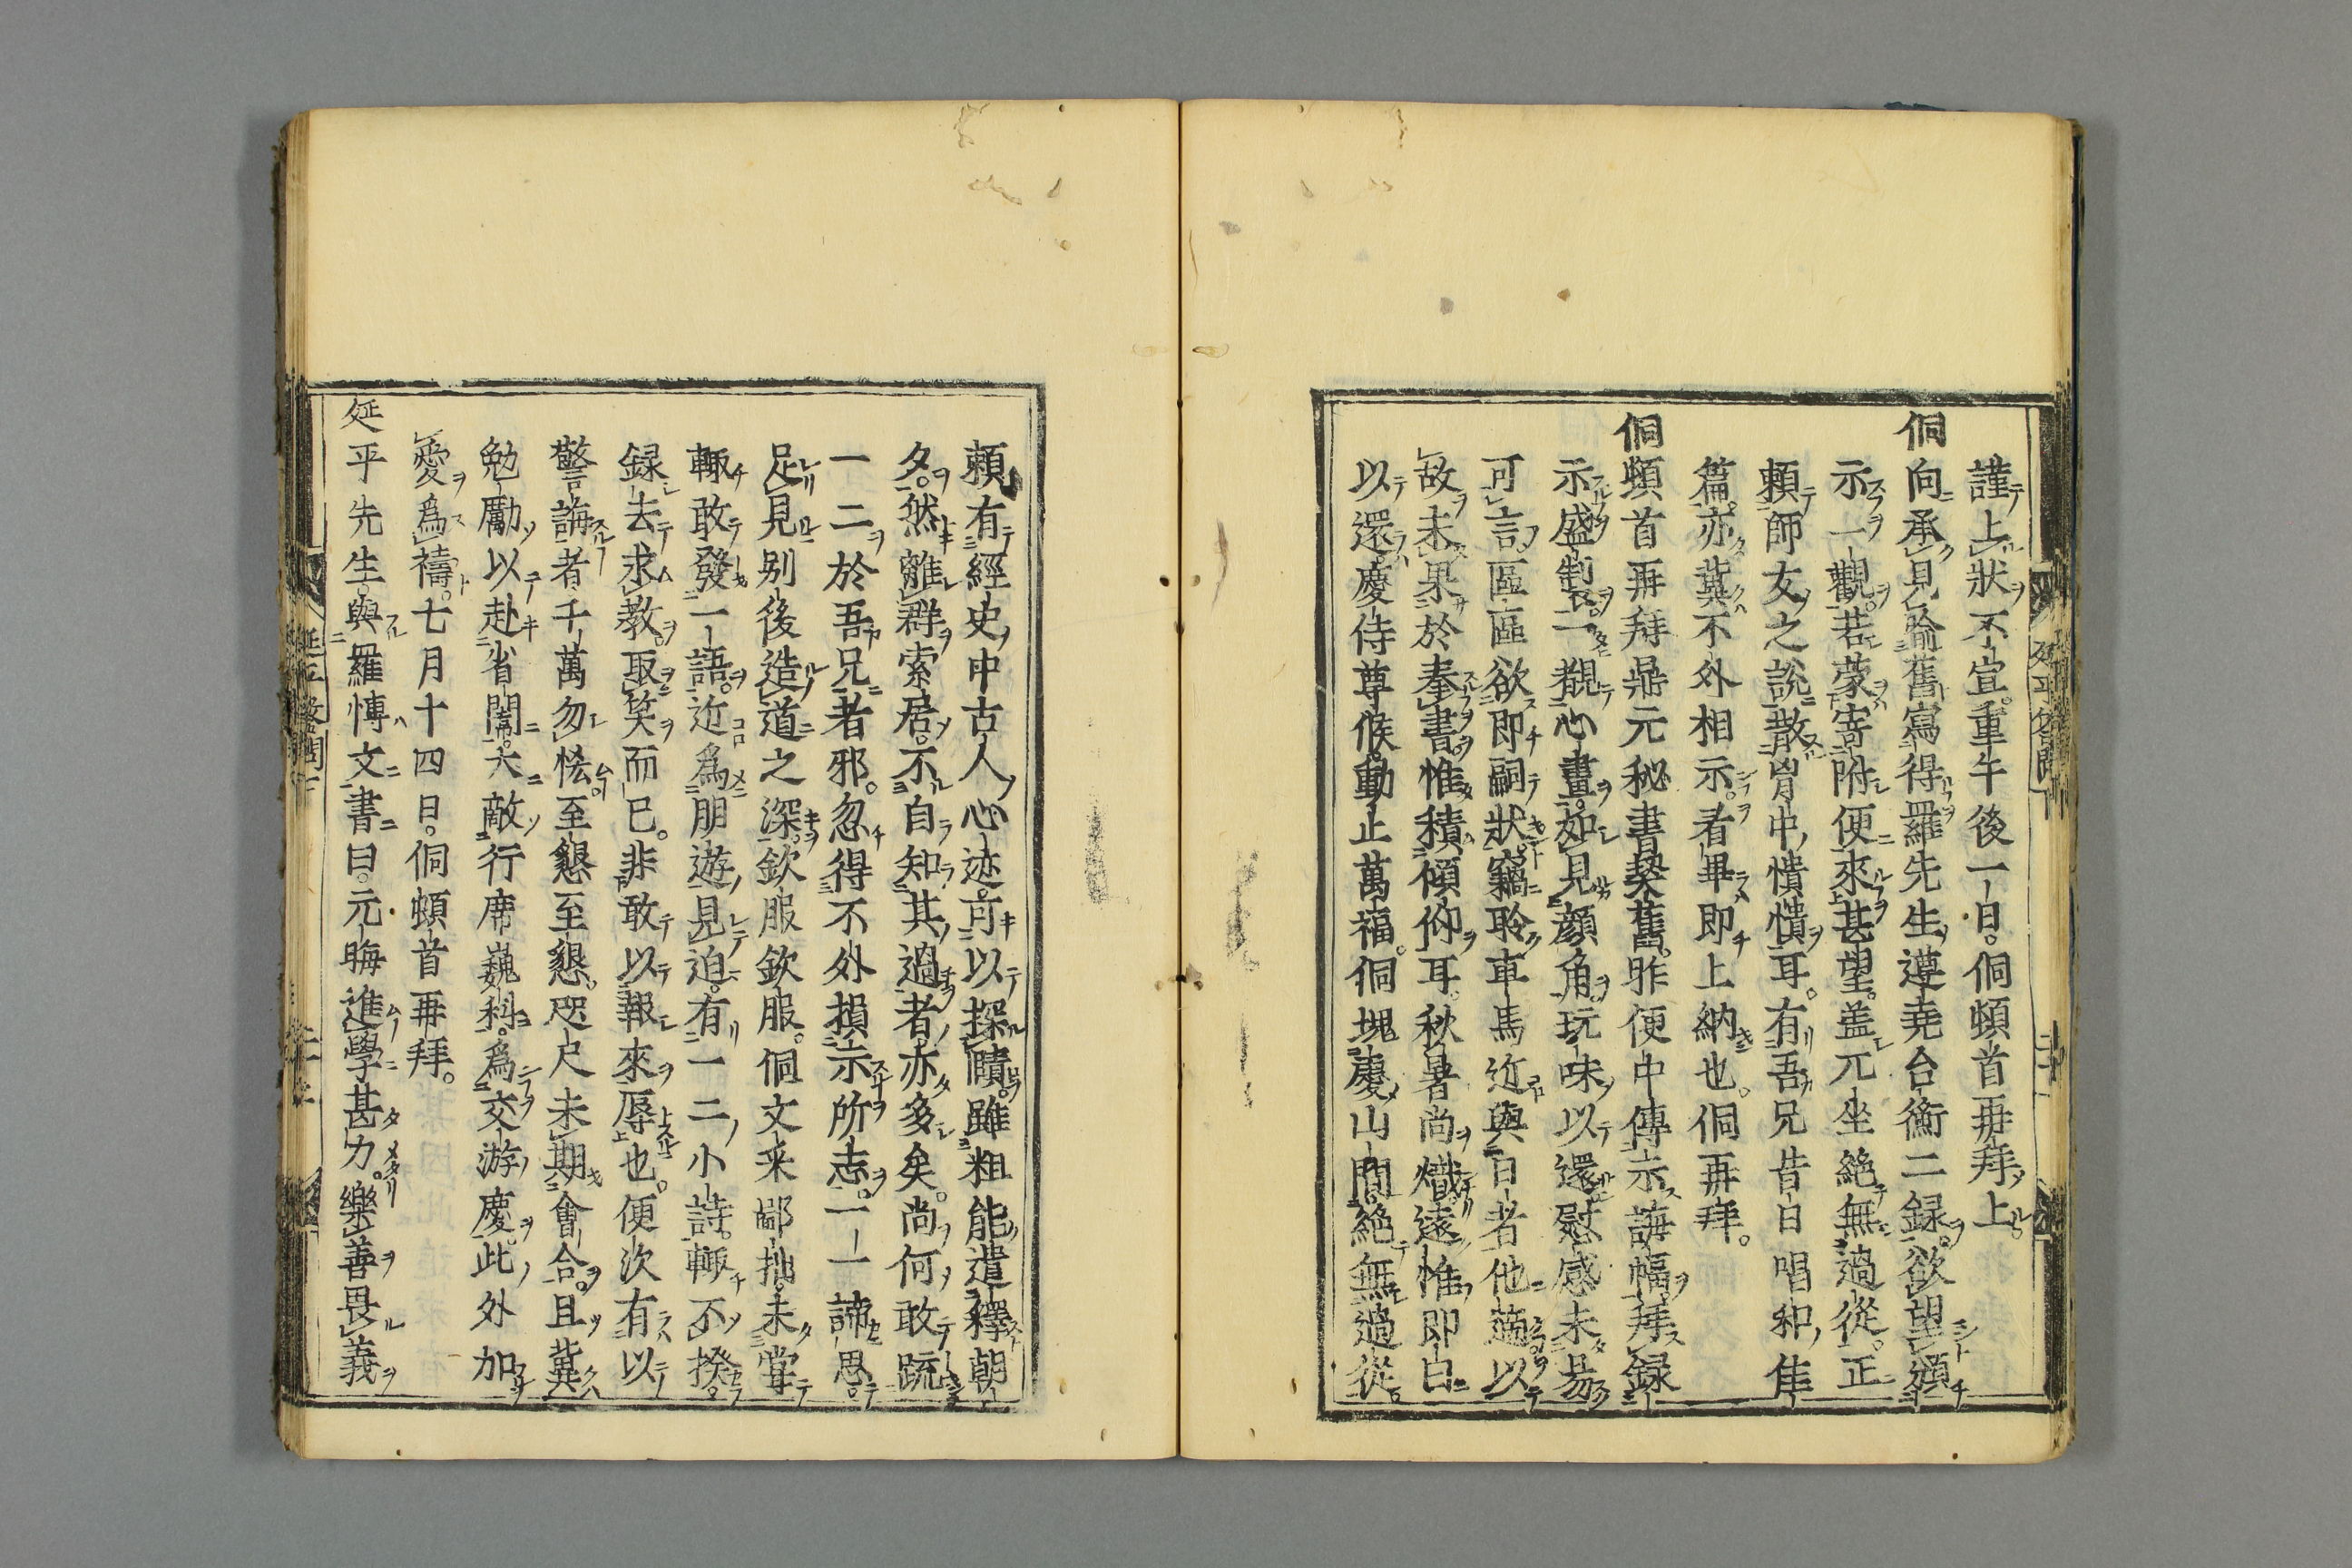 謹上狀不宣。重午後一日。侗頓首再拜上。
侗向承見喻舊寫得羅先生遵堯台衡二録。欲望頒
示一觀。若蒙寄附便來甚望。盖兀坐絶無過從。正
頼師友之說散胷中憒憒耳。有吾兄昔日唱和佳
篇。亦冀不外相示。看畢即上納也。侗再拜。
侗頓首再拜鼎元秘書契舊。昨便中傳示誨幅拜録
示盛製。一觀心畫。如見顔角。玩味以還慰感未易
可言。區區欲即嗣狀。竊聆車馬近與日者他適以
故未果於奉書。惟積傾仰耳。秋暑尚熾遠惟即日
以還。慶侍尊候動止萬福。侗塊處山間絶無過從。
頼有經史中古人心迹可以探賾。雖粗能遣釋朝
夕。然離群索居。不自知其過者。亦多矣。尚何敢疏
一二於吾兄者邪。忽得不外損示所志。一一諦思。
足見别後造道之深。欽服欽服。侗文采鄙拙。未嘗
輙敢發一語。近為朋遊見迫。有一二小詩。輙不揆。
録去求教。取笑而已。非敢以報來辱也。便次有以
警誨者千萬勿恡至懇至懇。咫尺未期會合。且冀
勉勵以赴省闈。大敵行席巍科。為交游慶。此外加
愛為禱。七月十四日。侗頓首再拜。
延平先生。與羅慱文書曰。元晦進學甚力。樂善畏義